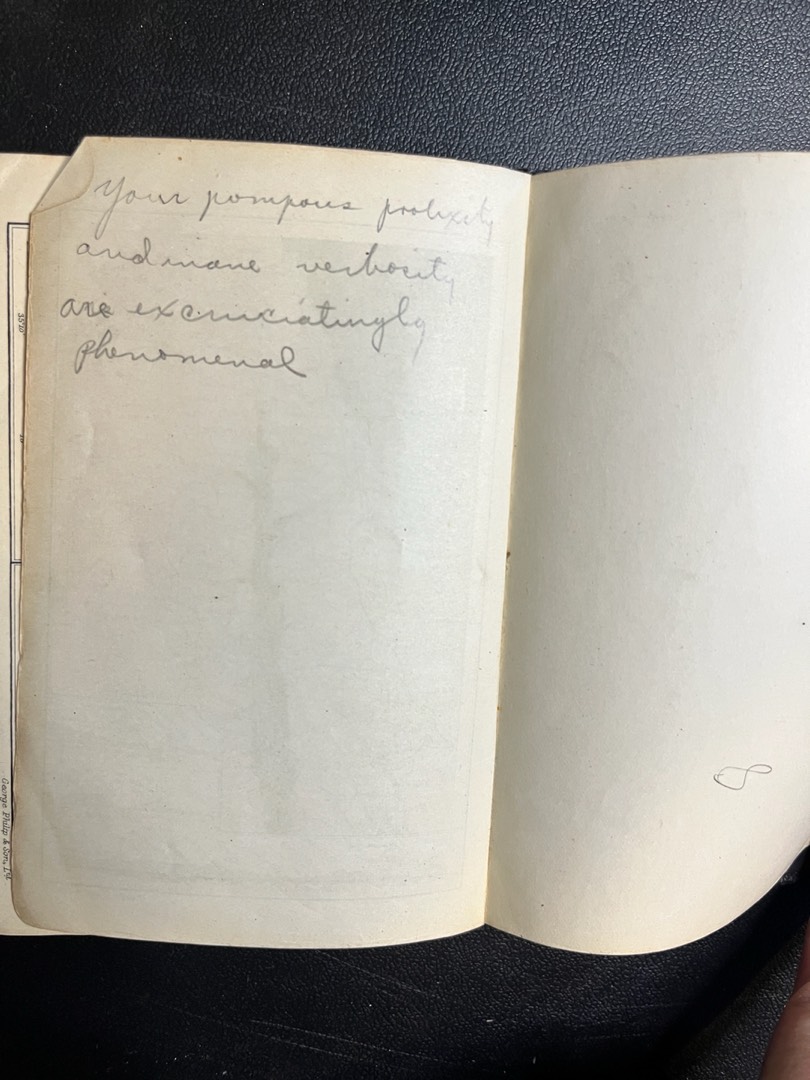 Your pompous prolixity
and inane verbosity
are excruciatingly
phenomenal
George Philip & Son, Ltd.
8